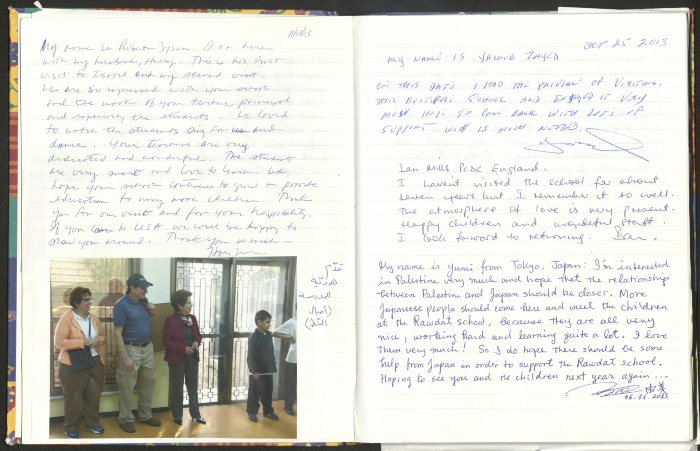 11/13/13
My name is Roberta Jypson. I am here
with my husband, Harvey. This is his first
visit to Israel and my second visit.
We are so impressed with your school
and the work of your teachers, principal
and especially the students. We loved
to watch the students sing for us and
dance. Your teachers are very
dedicated and wonderful. The students
are very smart and love to learn. We
hope your school continues to grow + provide
education to many more children. Thank
you for our visit and for your hospitality.
If you come to USA we will be happy to
show you around. Thank you so much
OCT 25 2013
MY NAME IS YACOUB ZAYED
ON THIS DATE I HAD THE PRIVLAGE OF VISITING
THIS BEUTIFUL SCHOOL AND ENJOYED IT VERY
MUCH. HOPE TO COM BACK WITH LOTS OF
SUPPORT WICH IS MUCH NEEDED.
Ian Mills PCDC England.
I havent visited the school for about
seven years but I remember it so well.
The atmosphere of love is very present.
Happy children and wonderful staff.
I look forward to returning. Ian.
My name is Yumi from Tokyo, Japan: I'm interested
in Palestine very much and hope that the relationship
between Palestine and Japan should be closer. More
Japanese people should come here and meet the children
at the Rawdat School, because they are all very
nice, working hard and learning quite a lot. I love
them very much! So I do hope there should be some
help from Japan in order to support the Rawdat school.
Hoping to see you and the children next year again...
由美
06.11.2013